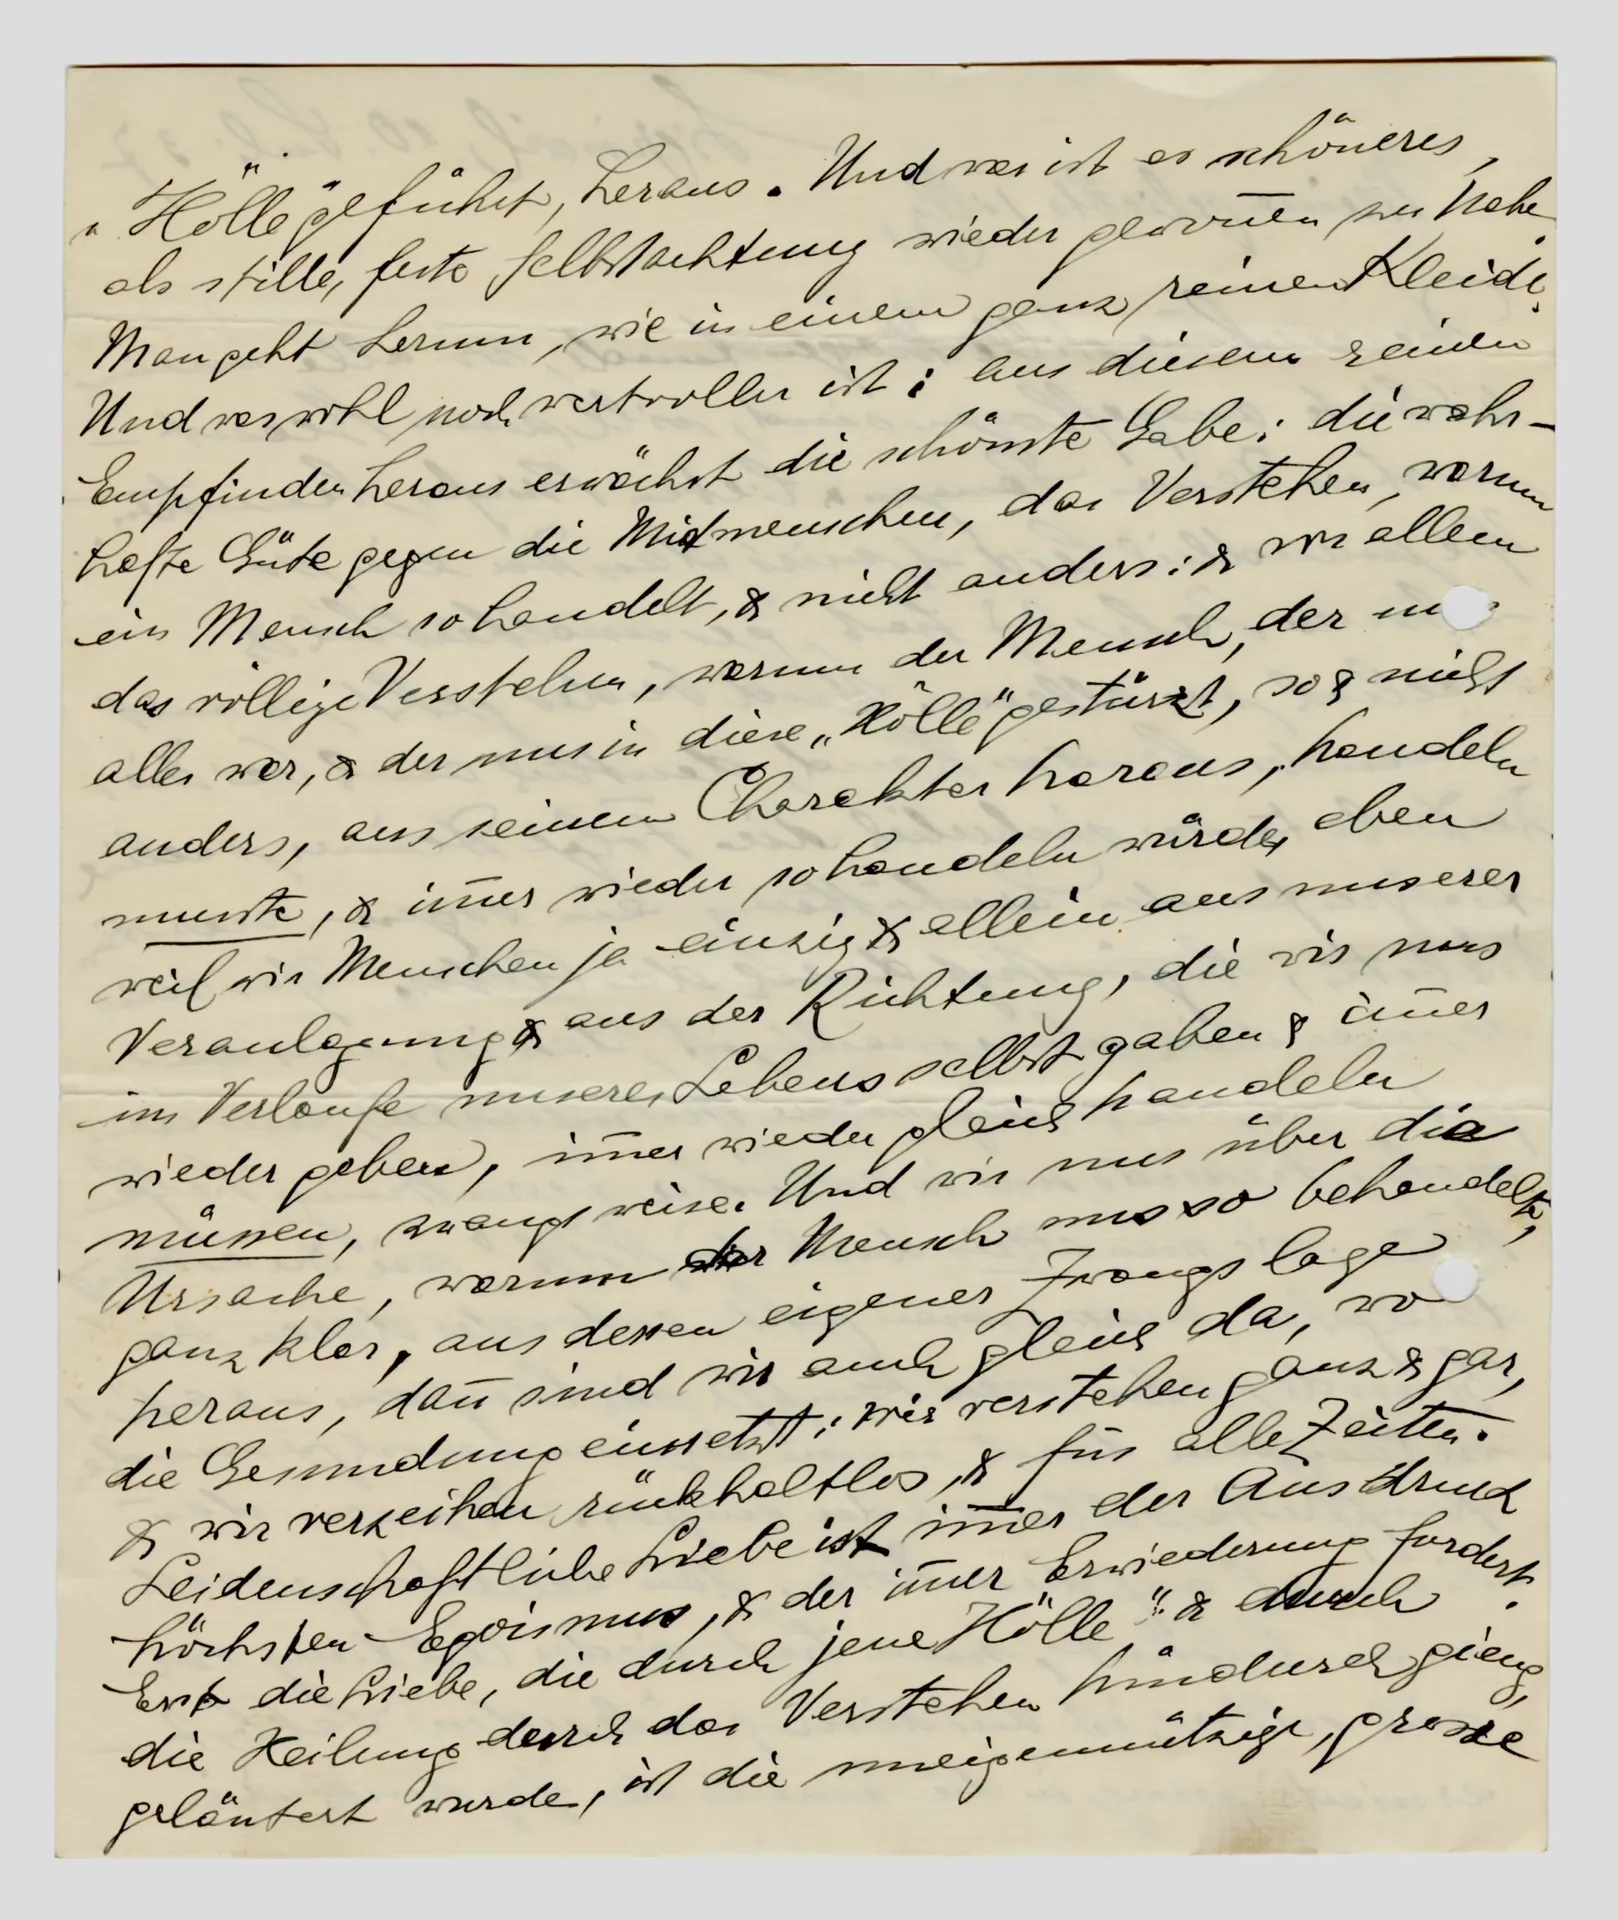 „Hölle" geführt, heraus. Und was ist es schöneres,
als stille, feste Selbstachtung wieder gewon̅en zu habe
Man geht herum, wie in einem ganz reinen Kleide.
Und was wohl noch wertvoller ist: aus diesem reinen
Empfinden heraus erwächst die schönste Gabe: die wahr-
hafte Güte gegen die Mitmenschen, das Verstehen, warum
ein Mensch so handelt, & nicht anders: & vor allem
das völlige Verstehen, warum der Mensch, der uns
alles war, & der uns in diese „Hölle" gestürzt, so & nicht
anders, aus seinem Charakter heraus, handeln
musste, & im̅er wieder so handeln würde, eben
weil wir Menschen ja einzig & allein aus unserer
Veranlagung & aus der Richtung, die wir uns
im Verlaufe unseres Lebens selbst gaben & im̅er
wieder geben, im̅er wieder gleich handeln
müssen, zwangsweise. Und wir uns über die
Ursache, warum der Mensch uns so behandelte,
ganz klar, aus dessen eigener Zwangslage
heraus, dan̅ sind wir auch gleich da, wo
die Gesundung einsetzt: wir verstehen ganz & gar,
& wir verzeihen rückhaltlos, & für alle Zeiten.
Leidenschaftliche Liebe ist im̅er der Ausdruck
höchsten Egoismus, & der im̅er Erwiederung fordert.
Erst die Liebe, die durch jene „Hölle" & durch
die Heilung durch das Verstehen hindurch gieng,
geläutert wurde, ist die uneigennützige, grosse